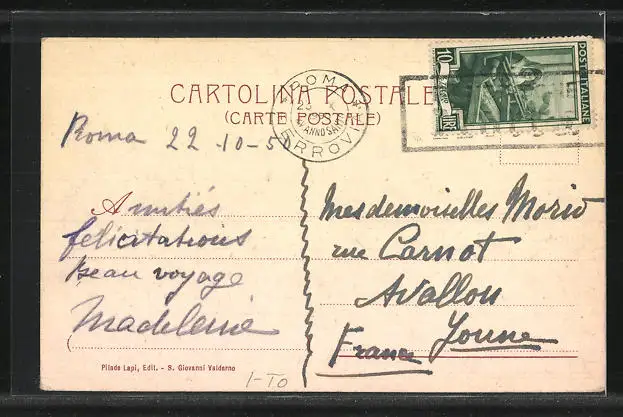 CARTOLINA POSTALE
(CARTE POSTALE)
ROMA
FERROVIA
ANNO SANTO
10
LIRE
POSTE ITALIANE
Roma 22-10-50
Amitiés
félicitations
Beau voyage
Madeleine
Mesdemoiselles Morio
rue Carnot
Avallon
Yonne
France
Pilade Lapi, Edit. - S. Giovanni Valdarno
1-TO